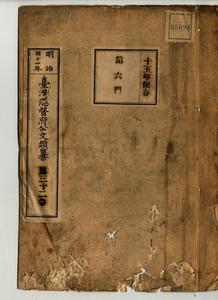 明治
四十一年
臺灣總督府公文類纂
第三十二巻
十五年保存
第六門